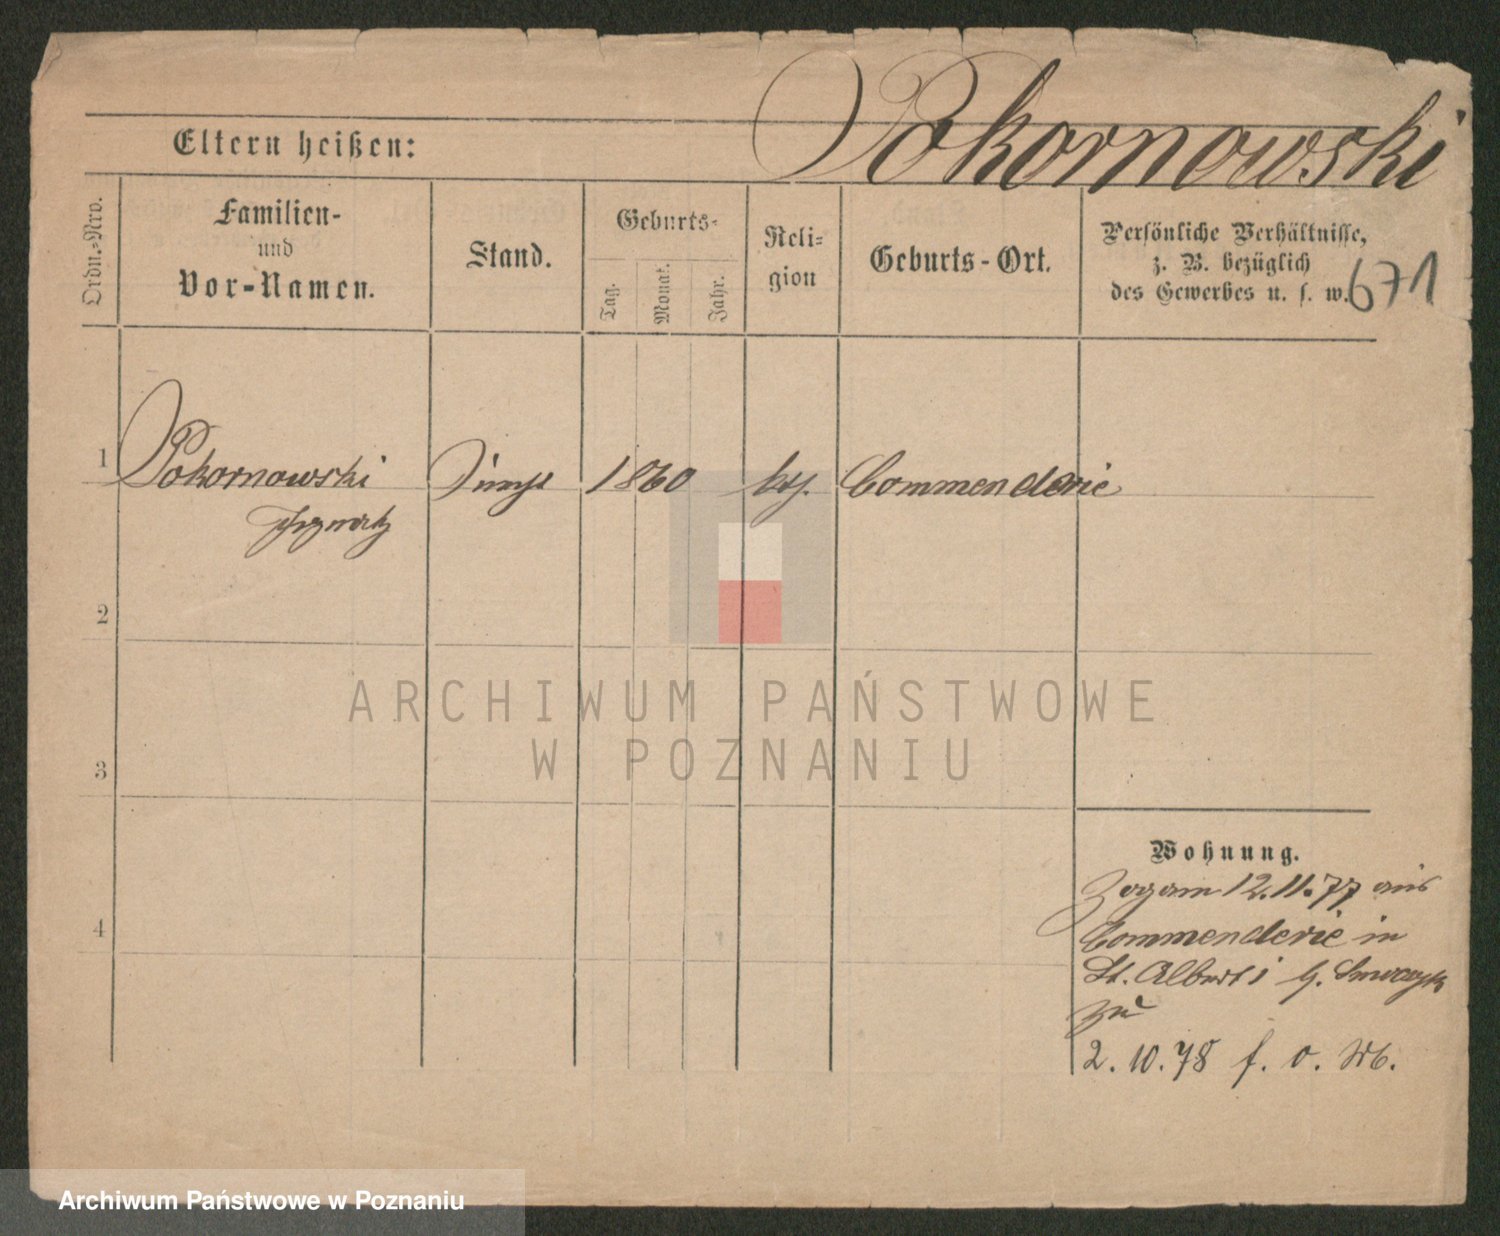 Pokornowski
Eltern heißen:
Ordn.-Nro.
Familien-
und
Vor-Namen.
Stand.
Geburts-
Tag.
Monat.
Jahr.
Reli-
gion
Geburts-Ort.
Persönliche Verhältnisse,
z. B. bezüglich
des Gewerbes u. s. w.
671
1 Pokornowski 1860 Commenderie
Ignatz
2
3
4
ARCHIWUM PAŃSTWOWE
W POZNANIU
Wohnung.
Zogam 12.11.77 aus
Commenderie in
St. Albert
zu
2.10.78 f. o.
Archiwum Państwowe w Poznaniu